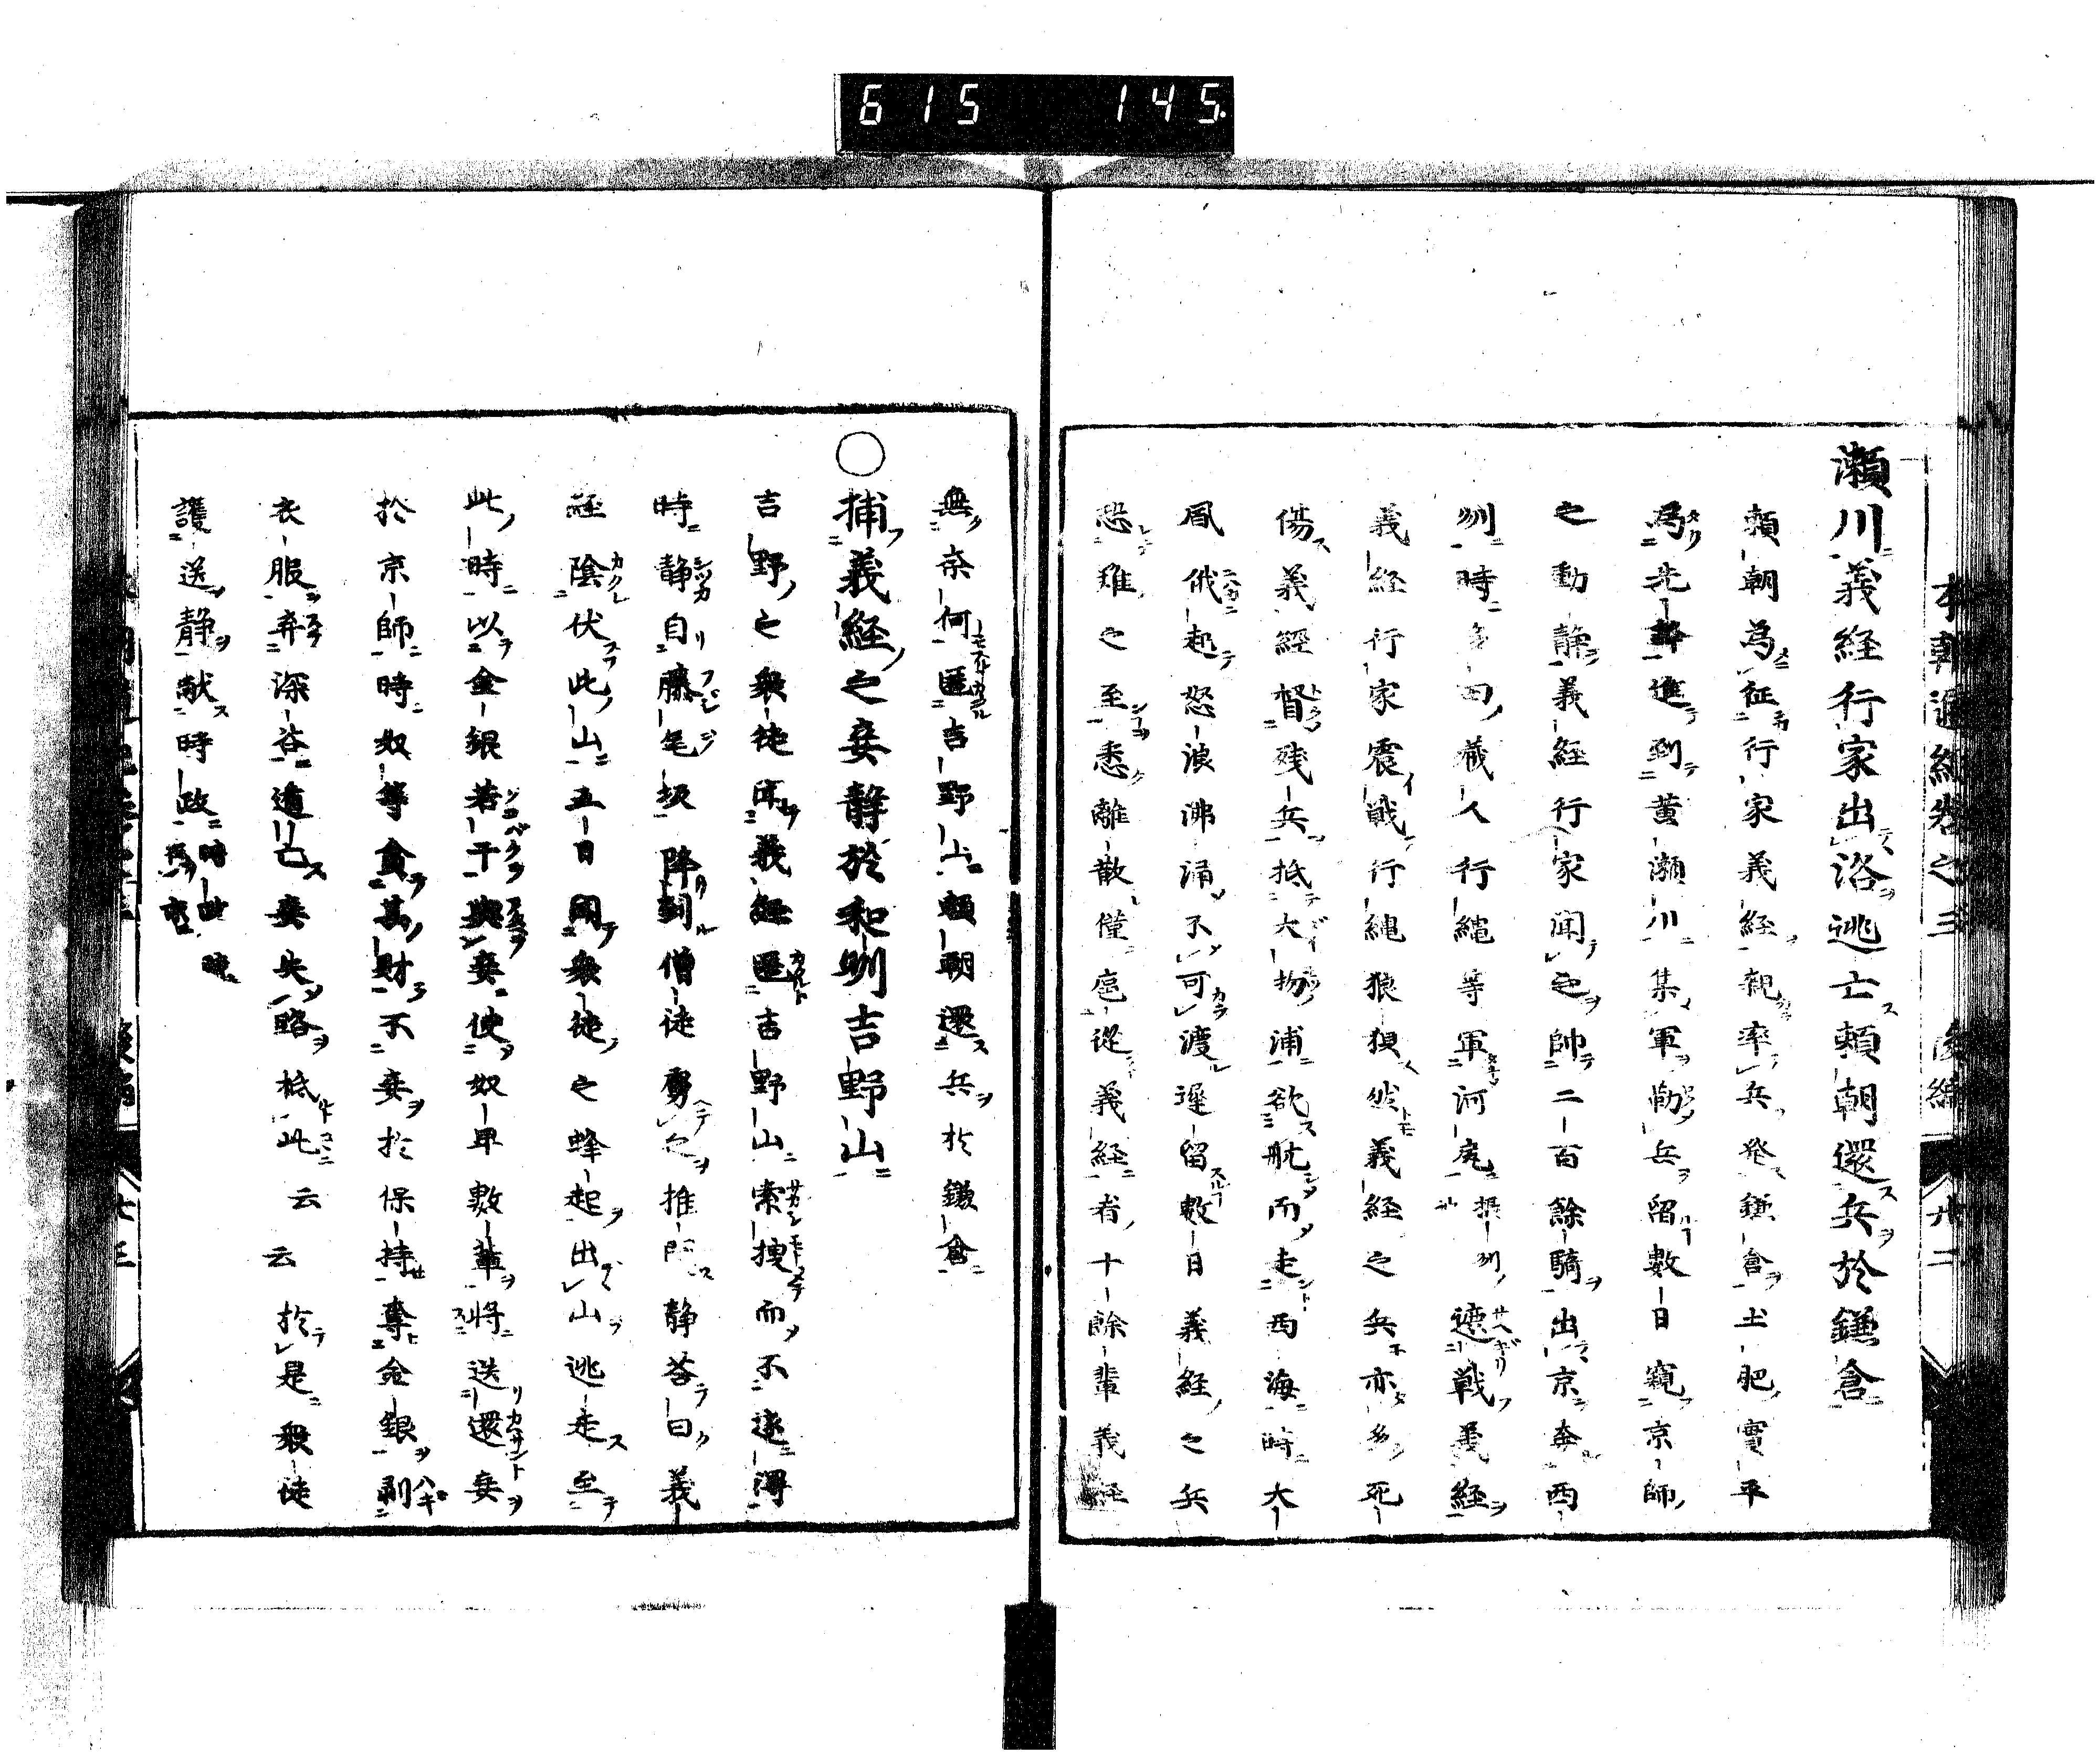 615 145
瀬川義経行家出洛逃亡頼朝還兵於鎌倉
頼朝為征行家義経親率兵発鎌倉土肥實平
為先 進到黄瀬川集軍勒兵留數日窺京師
之動静義経行家聞之帥二百餘騎出京奔西
州時多田蔵人行縄等軍河尻摂州遮戦義経
義経行家震戦行縄狼狽然義経之兵亦多死
傷義経督残兵抵大物浦欲航而走西海時大
風俄起怒浪沸涌不可渡遅留數日義経之兵
恐難之至悉離散僅扈從義経者十餘輩義経
無奈何匿吉野山頼朝還兵於鎌倉
○捕義経之妾静於和州吉野山
吉野之衆徒 義経匿吉野山索捜而不遂得
時静自藤尾坂降到僧徒 之推問静荅曰義
経陰伏此山五日聞衆徒之蜂起出山逃走至
此時以金銀若干與妾使奴卑數輩将送還妾
於京師時奴等貪其財不妾於保持奪金銀剥
衣服弃深谷遁亡妾失路抵此云云於是衆徒
護送静献時政時